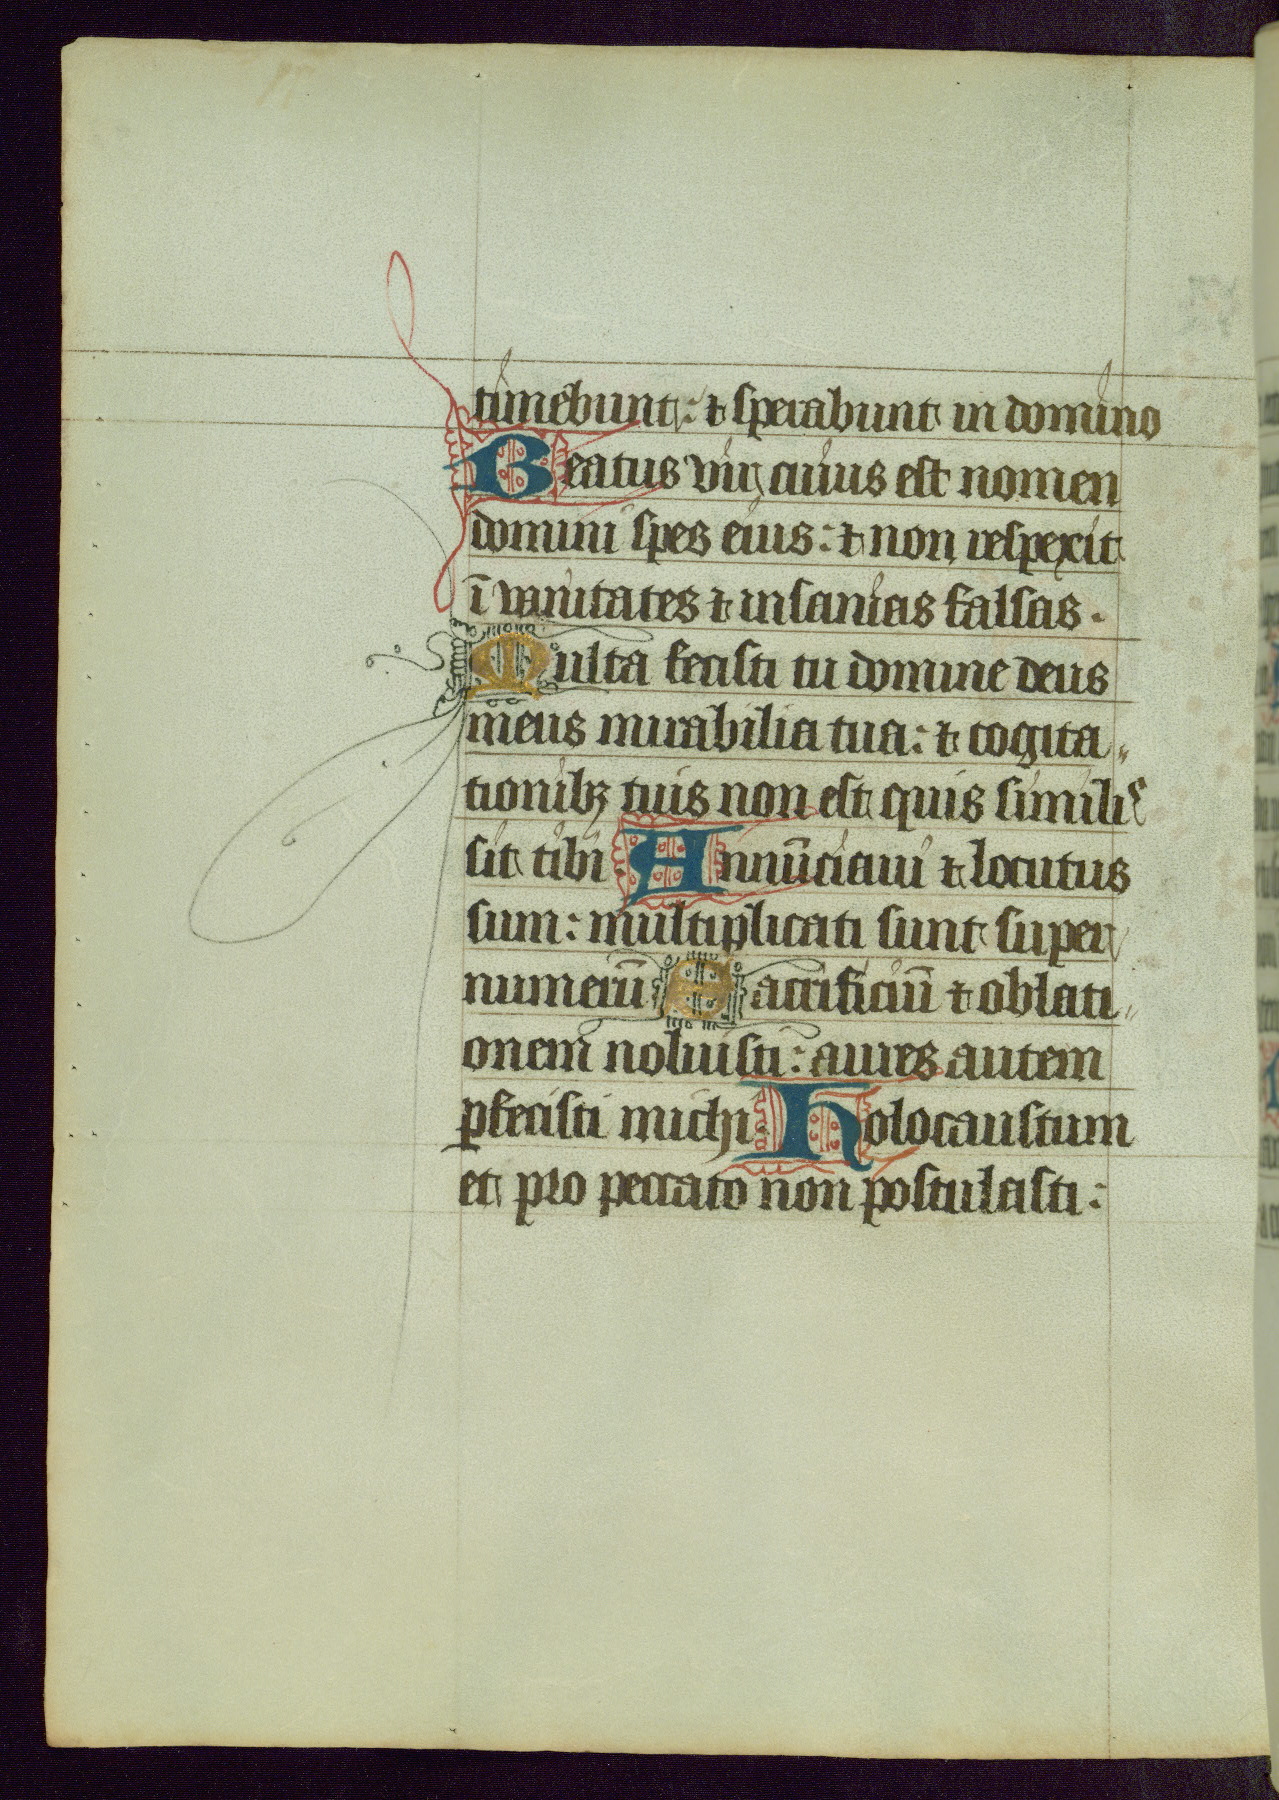 timebunt: ⁊ sperabunt in domino
Beatus vir cuius est nomen
domini spes eius: ⁊ non respexit
ī vanitates ⁊ insanias falsas.
Multa fecisti tu domine deus
meus mirabilia tua: ⁊ cogita
tionibꝫ tuis non est quis similis
sit tibi Annūciaui ⁊ locutus
sum: multiplicati sunt super
numerū Sacrificiū ⁊ oblati
onem noluisti: aures autem
ꝑfecisti michi Holocaustum
et pro peccato non postulasti: